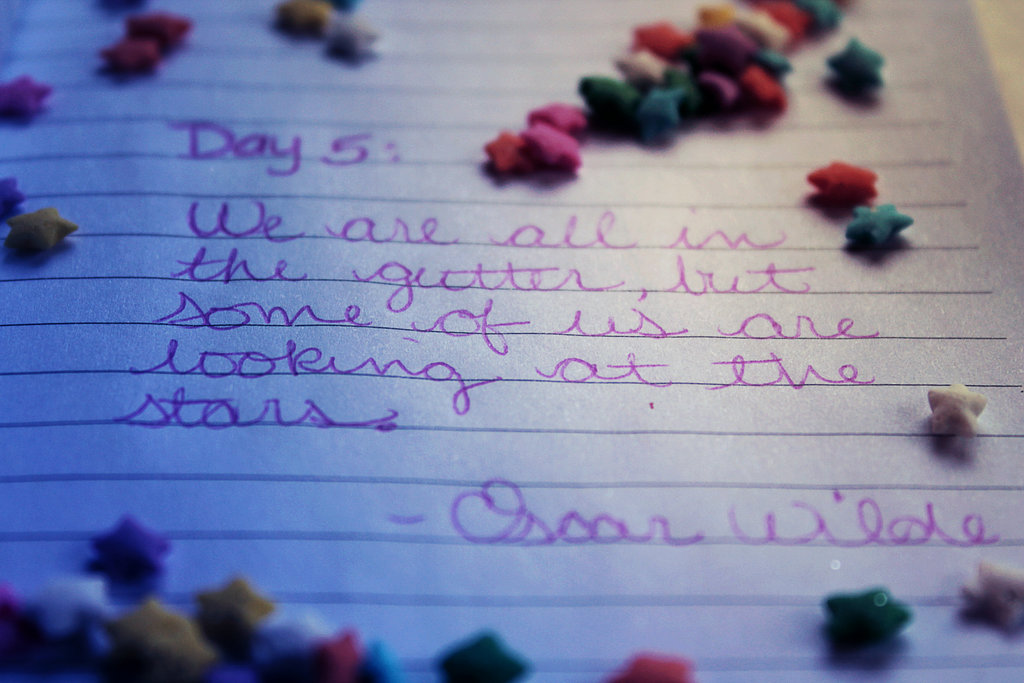 Day 5:
We are all in
the gutter, but
some of us are
looking at the
stars.
- Oscar Wilde